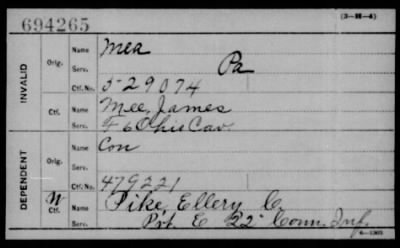 694265
(3-H-4)
INVALID
Orig.
Name Mea
Serv. Pa
Ctf. No. 529074
Ctf.
Name Mee, James
Serv. F 6 Ohio Cav.
DEPENDENT
Orig.
Name Con
Serv.
Ctf. No. 479221
W Ctf.
Name Pike, Ellery C
Serv. Pvt. E 22" Conn. Inf.
6-1303